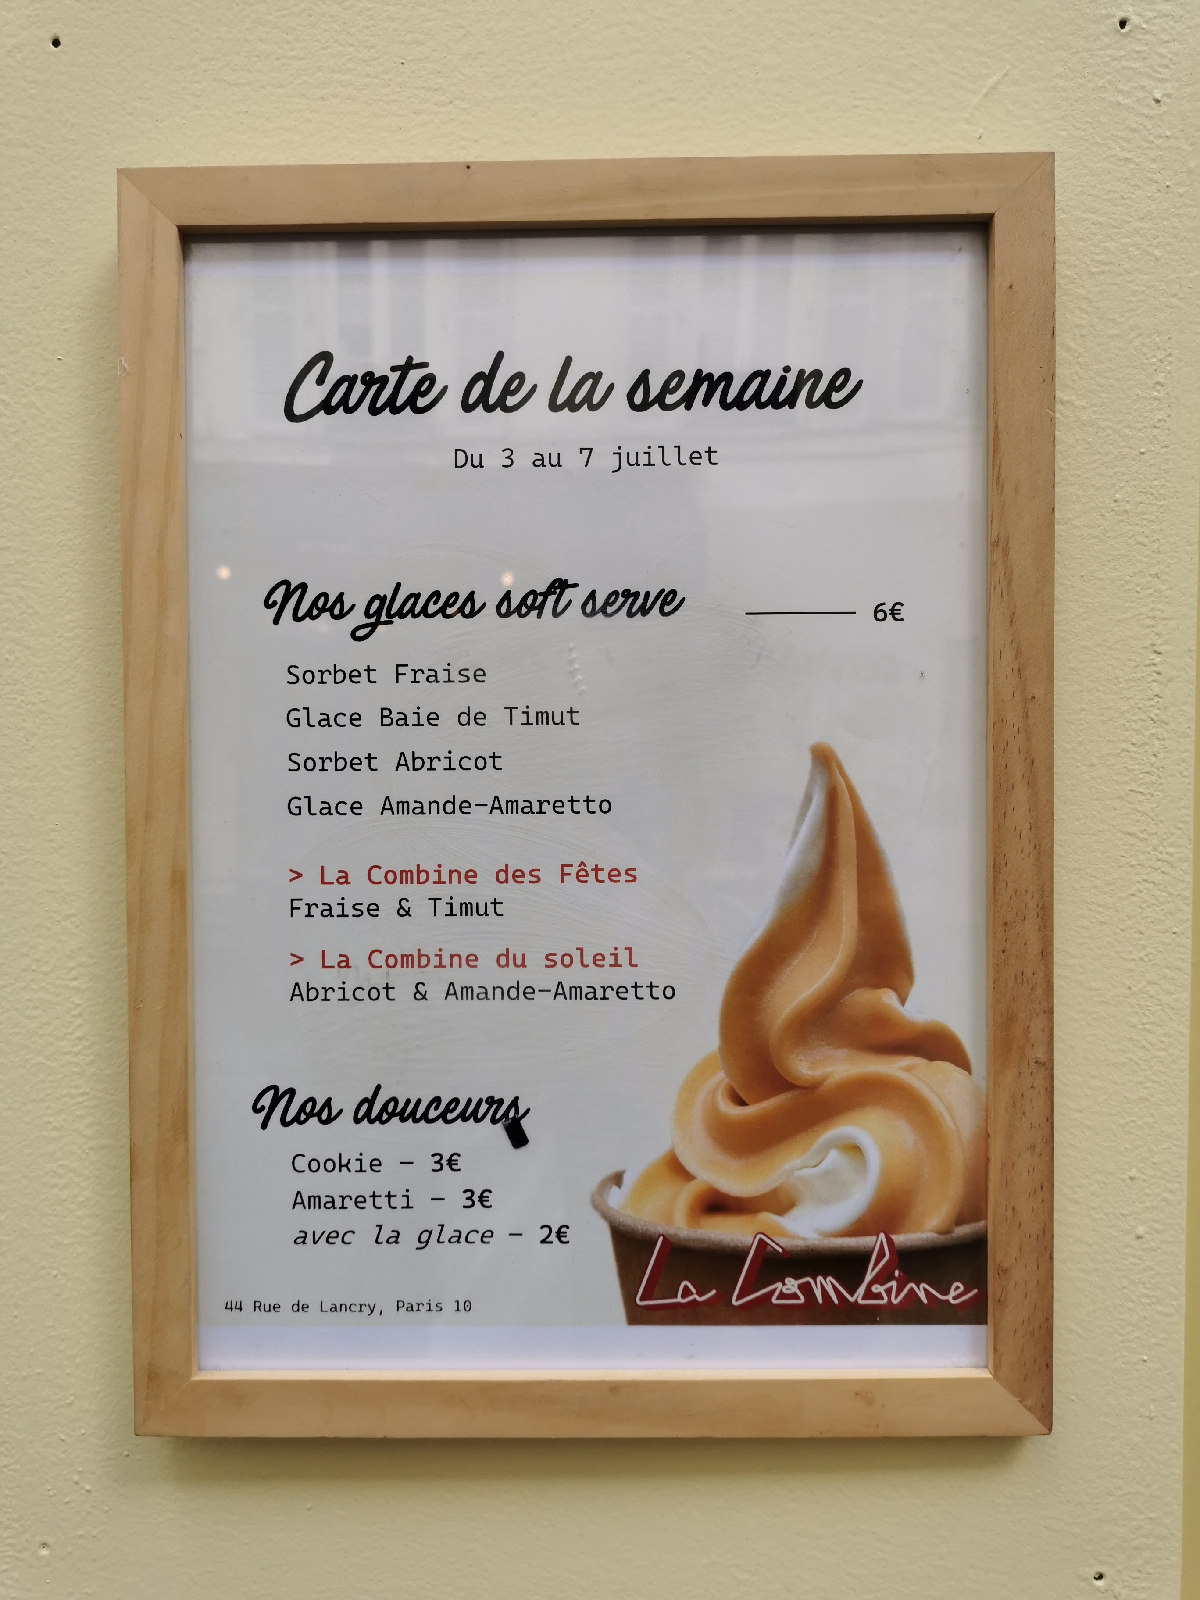 Carte de la semaine
Du 3 au 7 juillet
Nos glaces soft serve — 6€
Sorbet Fraise
Glace Baie de Timut
Sorbet Abricot
Glace Amande-Amaretto
> La Combine des Fêtes
Fraise & Timut
> La Combine du soleil
Abricot & Amande-Amaretto
Nos douceurs
Cookie – 3€
Amaretti – 3€
avec la glace – 2€
La Combine
44 Rue de Lancry, Paris 10